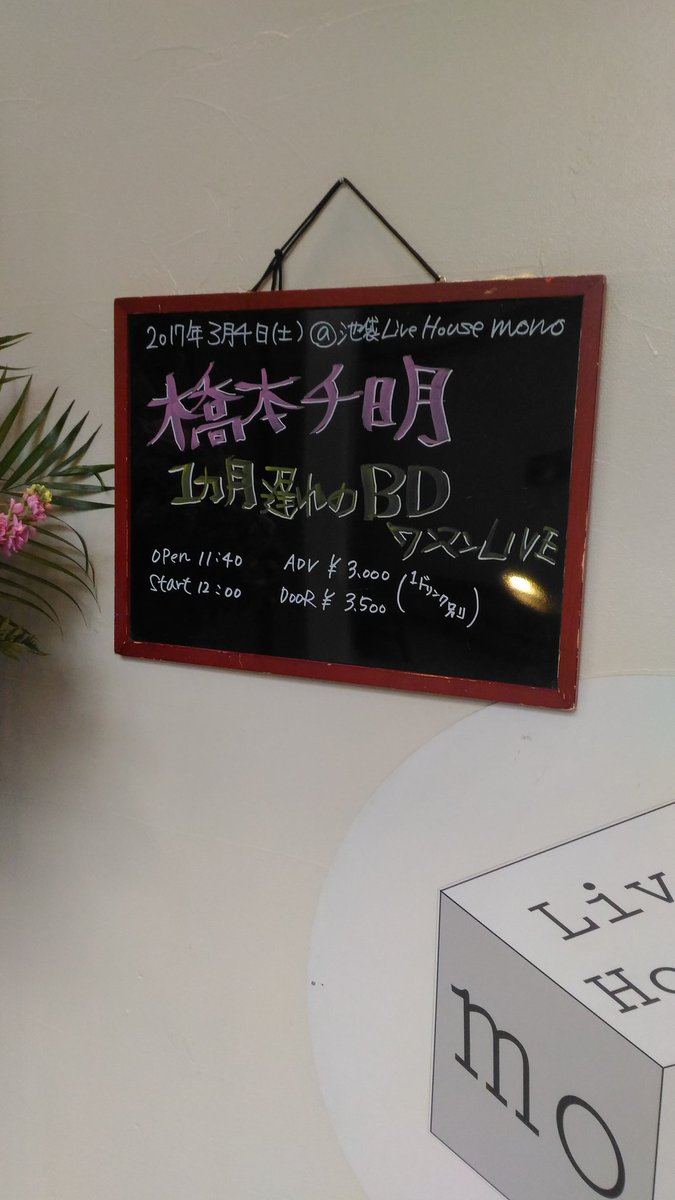 2017年3月4日(土) @池袋Live House mono
橋本千明
1カ月遅れのBD
ワンマンLIVE
Open 11:40 ADV ¥3.000
Start 12:00 DOOR ¥3.500 (1ドリンク別)
Liv
Ho
mo